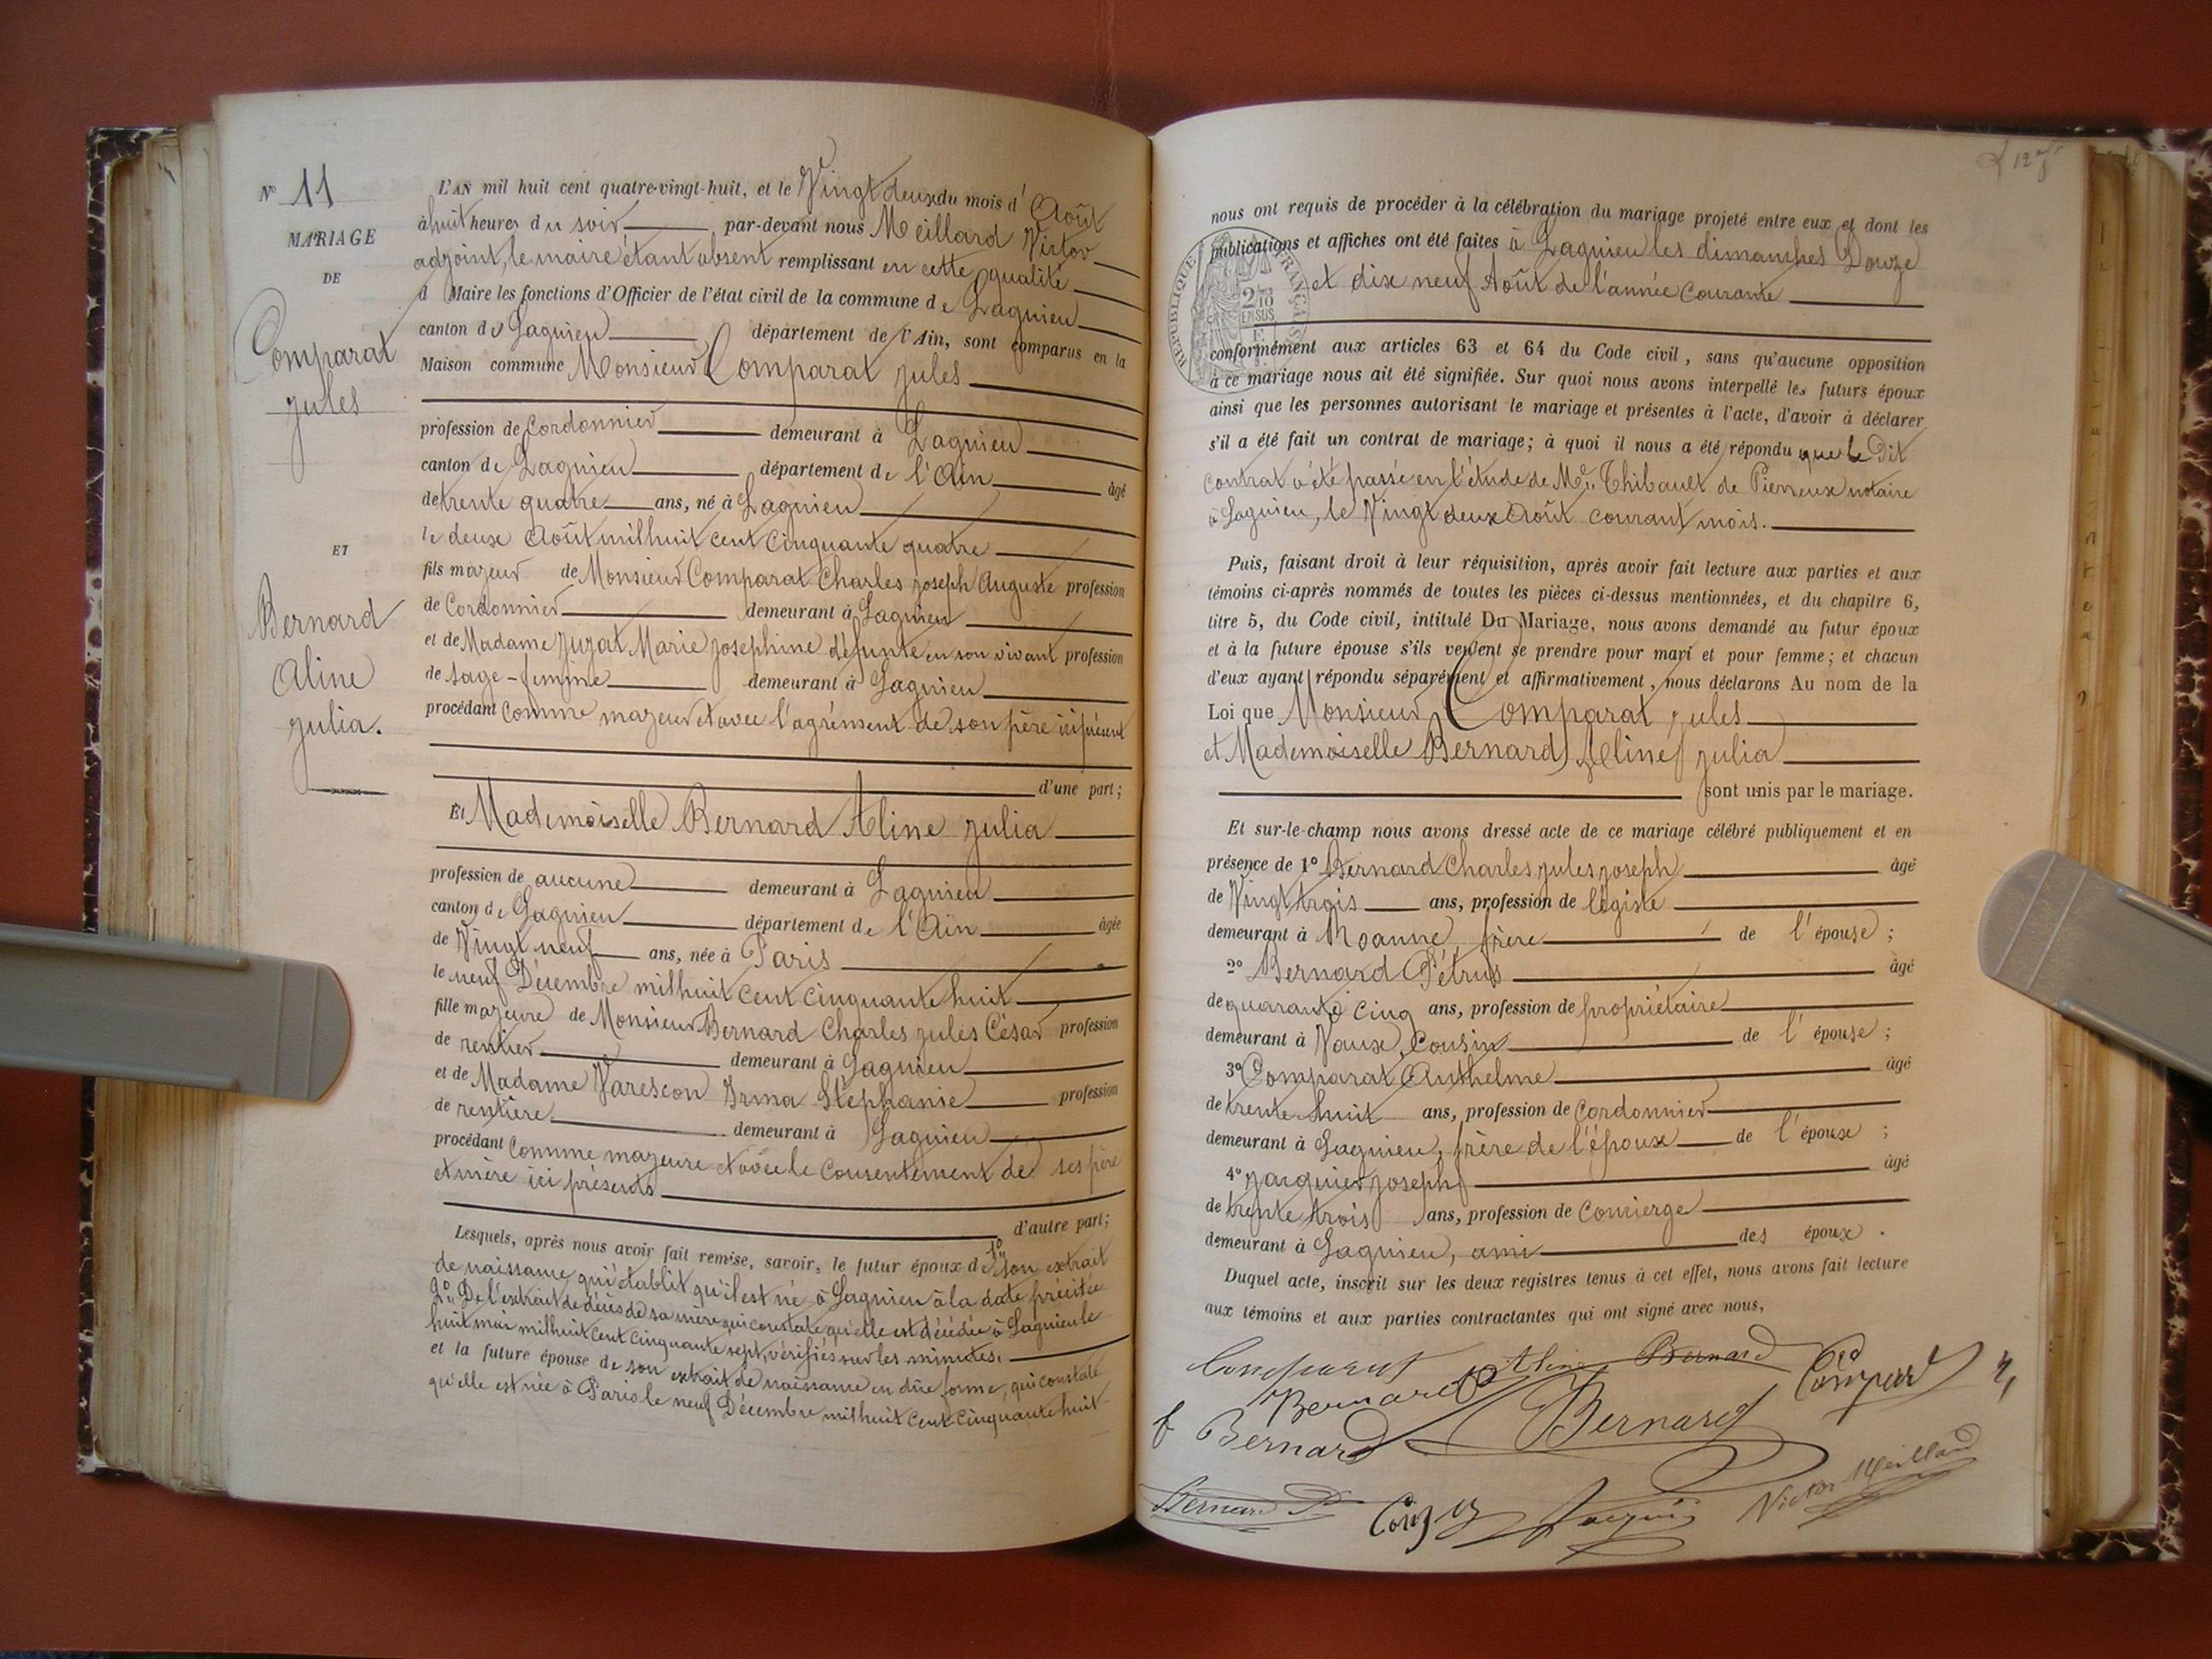 N° 11
MARIAGE
DE
Comparat
jules
ET
Bernard
Aline
julia.
L'AN mil huit cent quatre-vingt-huit, et le Vingt deux du mois d'Août
à huit heures du soir par-devant nous Meillard Victor
adjoint, le maire étant absent remplissant en cette qualité
d Maire les fonctions d'Officier de l'état civil de la commune de Lagnieu
canton de Lagnieu département de l'Ain, sont comparus en la
Maison commune Monsieur Comparat jules
profession de Cordonnier demeurant à Lagnieu
canton de Lagnieu département de l'Ain âgé
de trente quatre ans, né à Lagnieu
le deux Août mil huit cent cinquante quatre
fils majeur de Monsieur Comparat Charles joseph Auguste profession
de Cordonnier demeurant à Lagnieu
et de Madame juzat Marie josephine défunte en son vivant profession
de sage-femme demeurant à Lagnieu
procédant comme majeur et avec l'agrément de son père ici présent
d'une part;
Et Mademoiselle Bernard Aline julia
profession de aucune demeurant à Lagnieu
canton de Lagnieu département de l'Ain âgée
de Vingt neuf ans, née à Paris
le neuf Décembre mil huit cent cinquante huit
fille majeure de Monsieur Bernard Charles jules César profession
de rentier demeurant à Lagnieu
et de Madame Varescon Irma Stéphanie profession
de rentière demeurant à Lagnieu
procédant comme majeure et avec le consentement de ses père
et mère ici présents
d'autre part;
Lesquels, après nous avoir fait remise, savoir, le futur époux de 1° son extrait
de naissance qui établit qu'il est né à Lagnieu à la date précitée
2° De l'extrait de décès de sa mère qui constate qu'elle est décédée à Lagnieu le
huit mai mil huit cent cinquante sept, vérifiés sur les minutes.
et la future épouse de son extrait de naissance en dûe forme, qui constate
qu'elle est née à Paris le neuf Décembre mil huit cent cinquante huit
nous ont requis de procéder à la célébration du mariage projeté entre eux et dont les
publications et affiches ont été faites à Lagnieu les dimanches Douze
et dix neuf Août de l'année courante
RÉPUBLIQUE FRANÇAISE
2/10
EN SUS
conformément aux articles 63 et 64 du Code civil, sans qu'aucune opposition
à ce mariage nous ait été signifiée. Sur quoi nous avons interpellé les futurs époux
ainsi que les personnes autorisant le mariage et présentes à l'acte, d'avoir à déclarer
s'il a été fait un contrat de mariage; à quoi il nous a été répondu que le Dit
contrat a été passé en l'étude de Me Thibault de Pierreux notaire
à Lagnieu, le Vingt deux Août courant mois.
Puis, faisant droit à leur réquisition, après avoir fait lecture aux parties et aux
témoins ci-après nommés de toutes les pièces ci-dessus mentionnées, et du chapitre 6,
titre 5, du Code civil, intitulé Du Mariage, nous avons demandé au futur époux
et à la future épouse s'ils veulent se prendre pour mari et pour femme; et chacun
d'eux ayant répondu séparément et affirmativement, nous déclarons Au nom de la
Loi que Monsieur Comparat jules
et Mademoiselle Bernard Aline julia
sont unis par le mariage.
Et sur-le-champ nous avons dressé acte de ce mariage célébré publiquement et en
présence de 1° Bernard Charles jules joseph âgé
de Vingt trois ans, profession de légiste
demeurant à Roanne, frère de l'épouse;
2° Bernard Pétrus âgé
de quarante cinq ans, profession de propriétaire
demeurant à Vaux, Cousin de l'épouse;
3° Comparat Anthelme âgé
de trente huit ans, profession de Cordonnier
demeurant à Lagnieu, frère de l'époux de l'époux;
4° jacquier joseph âgé
de trente trois ans, profession de Concierge
demeurant à Lagnieu, ami des époux.
Duquel acte, inscrit sur les deux registres tenus à cet effet, nous avons fait lecture
aux témoins et aux parties contractantes qui ont signé avec nous,
Comparat Aline Bernard
Bernard
Bernard Bernard
Bernard P Victor Meillard